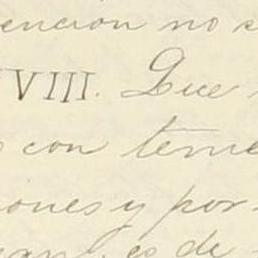 encion no s
VIII. Que
con teme
iones y por
es de